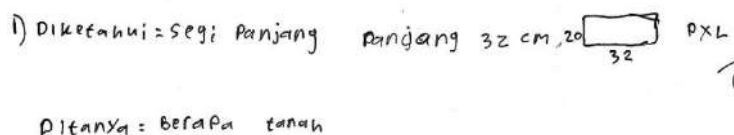 1) Diketahui = segi Panjang Panjang 32 cm, 20 PXL
32
Ditanya = Berapa tanah